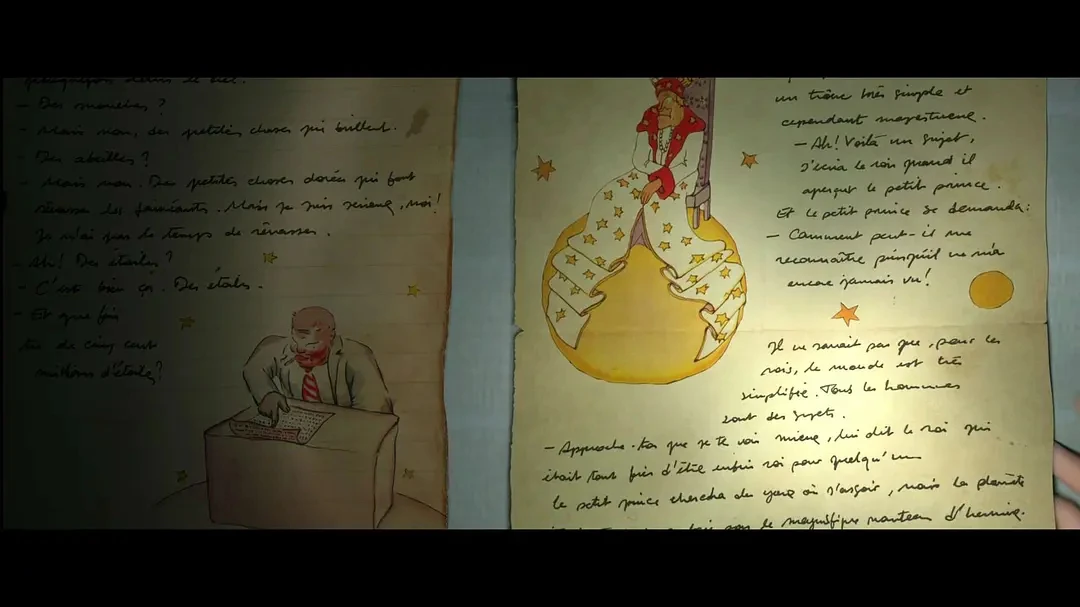 - Des mouches ?
- Mais non, des petites choses qui brillent.
- Des abeilles ?
- Mais non. Des petites choses dorées qui font
rêvasser les fainéants. Mais je suis sérieux, moi !
Je n'ai pas le temps de rêvasser.
Ah ! Des étoiles ?
- C'est bien ça. Des étoiles.
- Et que fais
tu de cinq cent
millions d'étoiles ?
un trône très simple et
cependant majestueux.
- Ah ! Voilà un sujet,
s'écria le roi quand il
aperçut le petit prince.
Et le petit prince se demanda :
- Comment peut-il me
reconnaître puisqu'il ne m'a
encore jamais vu !
Il ne savait pas que, pour les
rois, le monde est très
simplifié. Tous les hommes
sont des sujets.
- Approche-toi que je te voie mieux, lui dit le roi qui
était tout fier d'être enfin roi pour quelqu'un
le petit prince chercha des yeux où s'asseoir, mais la planète
le magnifique manteau d'hermine.